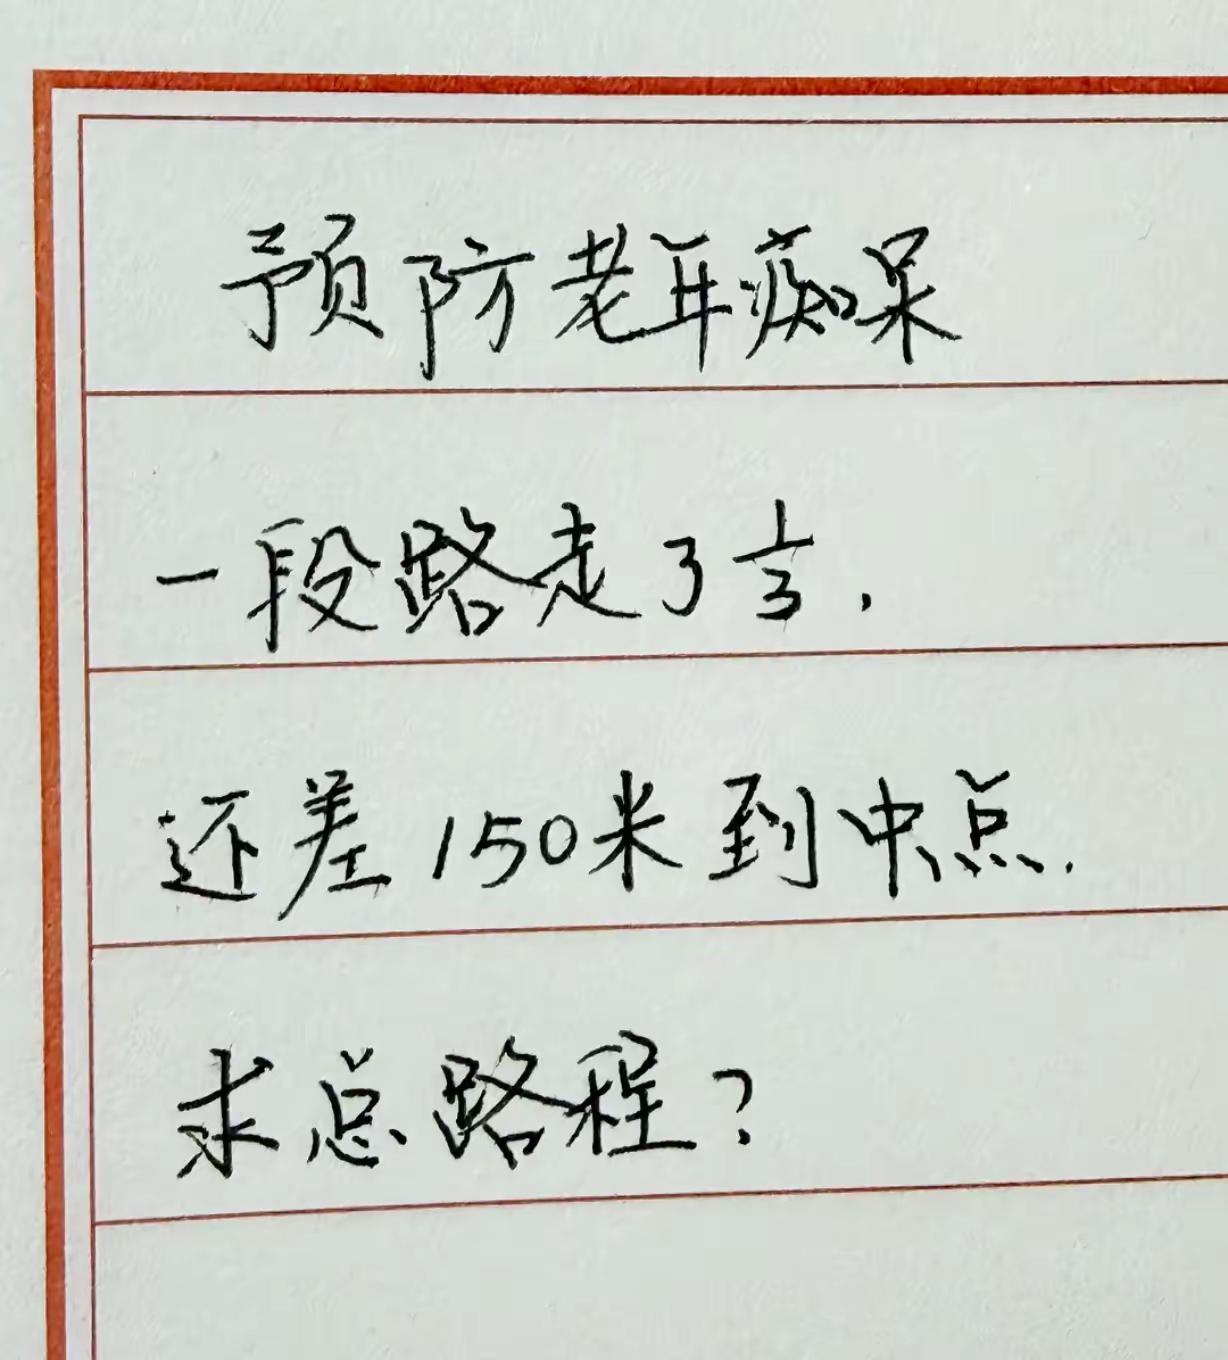 预防老年痴呆
一段路走了1/3,
还差150米到中点.
求总路程?